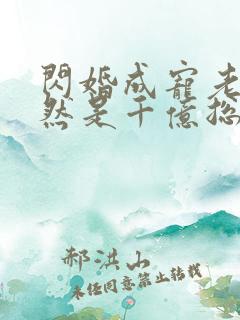 閃婚成寵老
然是千億總
郝洪山
未经同意禁止转载